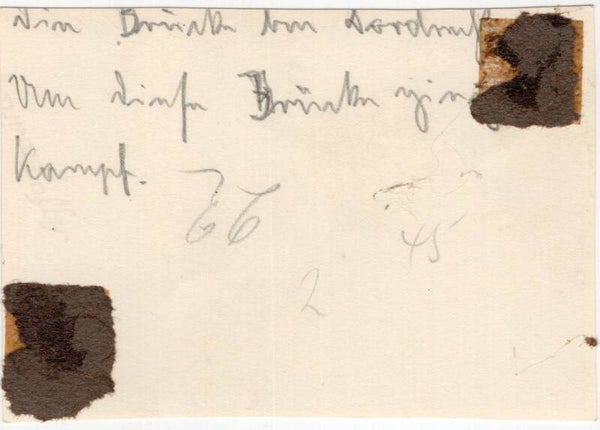 Die Brücke von Dordrecht
Um diese Brücke ging
Kampf.
45
2